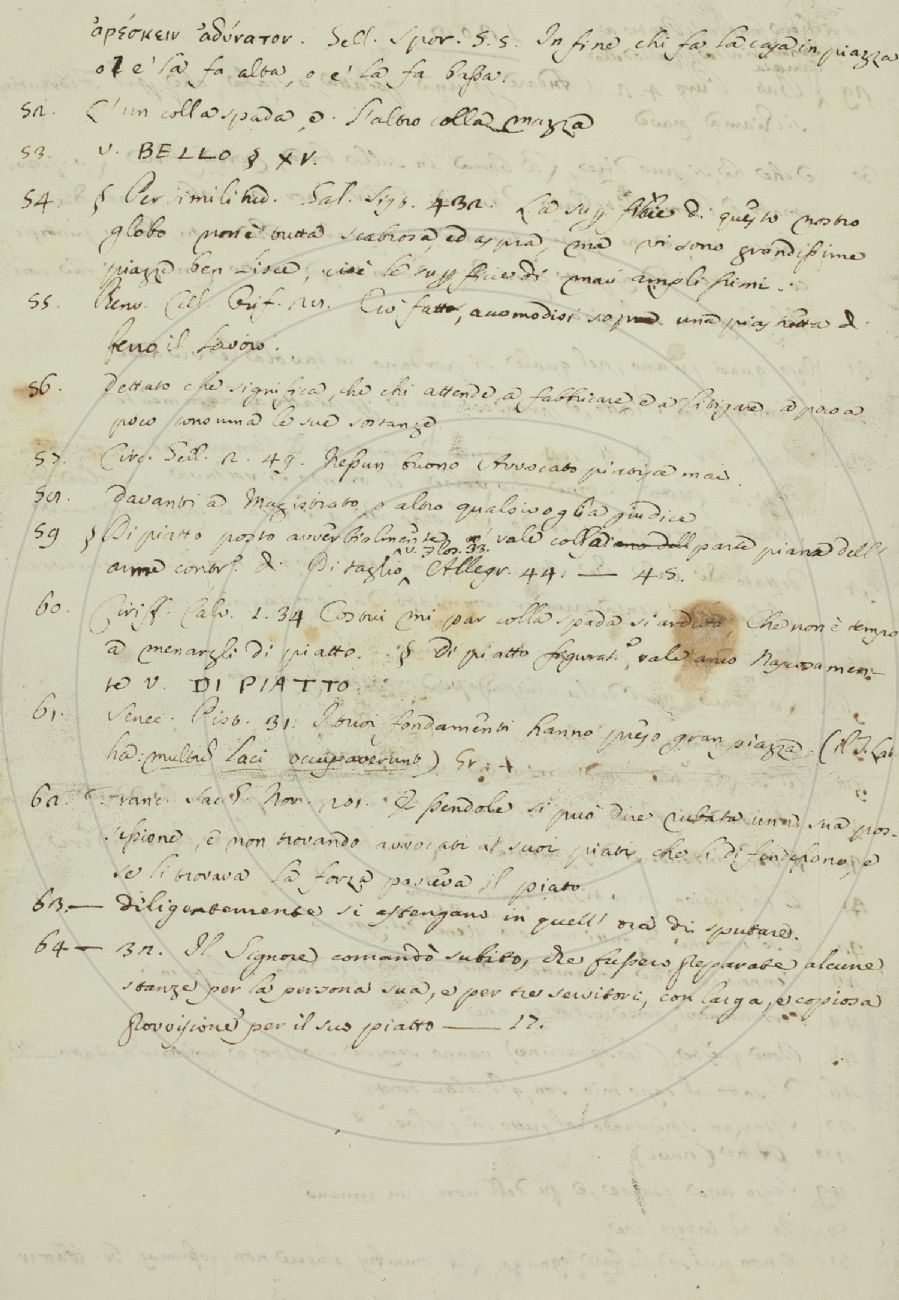 ἀρέσκειν ἀδύνατον. Sell. Spor. 5. 5. In fine chi fa la casa in piazza
o e' la fa alta, o e' la fa bassa.
52. L'un colla spada, e l'altro colla mazza
53. V. BELLO § XV.
54 § Per similitud. Gal. Sist. 432. La suppfibie di questo nostro
globo non è tutta scabrosa, ed aspra, ma vi sono grandissime
piazze ben lisce, cioè le suppfice di mari amplissimi.
55. Benv. Cell. Oref. 21. Ciò fatto, accomodisi sopra una piastretta di
ferro il lavoro.
56. Dettato che significa, che chi attende a fabbricare, e a litigare a poco a
poco consuma le sue sostanze
57. Circ. Gell. 2. 49. Nessun buono Avvocato piatisca mai.
58. Davanti a Magistrato, o altro qualsivoglia giudice
59 § Di piatto posto avverbialmente vale colla parte piana dell'
arme contr.º di Di taglio v. Flos. 33. Allegr. 44. — 45.
60. Ciriff. Calv. 1. 34 Costui mi par colla spada si ardito, Che non è tempo
a menargli di piatto. § Di piatto figurat.º, vale anco Nascosamen-
te V. DI PIATTO.
61. Senec. Pist. 31: I tuoi fondamenti hanno preso gran piazza. (il T. Lat.
ha: multum laci occupaverunt) Gr: +
62. Franc. Sacch. Nov. 201. Essendole si può dire rubata una sua pos-
sessione, e non trovando avvocati ai suoi piati, che li difendessono, e
se li trovava la forza pasceva il piato
63. — diligentemente si astengano in quell' ora di sputare.
64 — 32. Il Signore comandò subito, che fussero preparate alcune
stanze per la persona sua, e per tre servitori, con larga, e copiosa
provvisione per il suo piatto — 17.